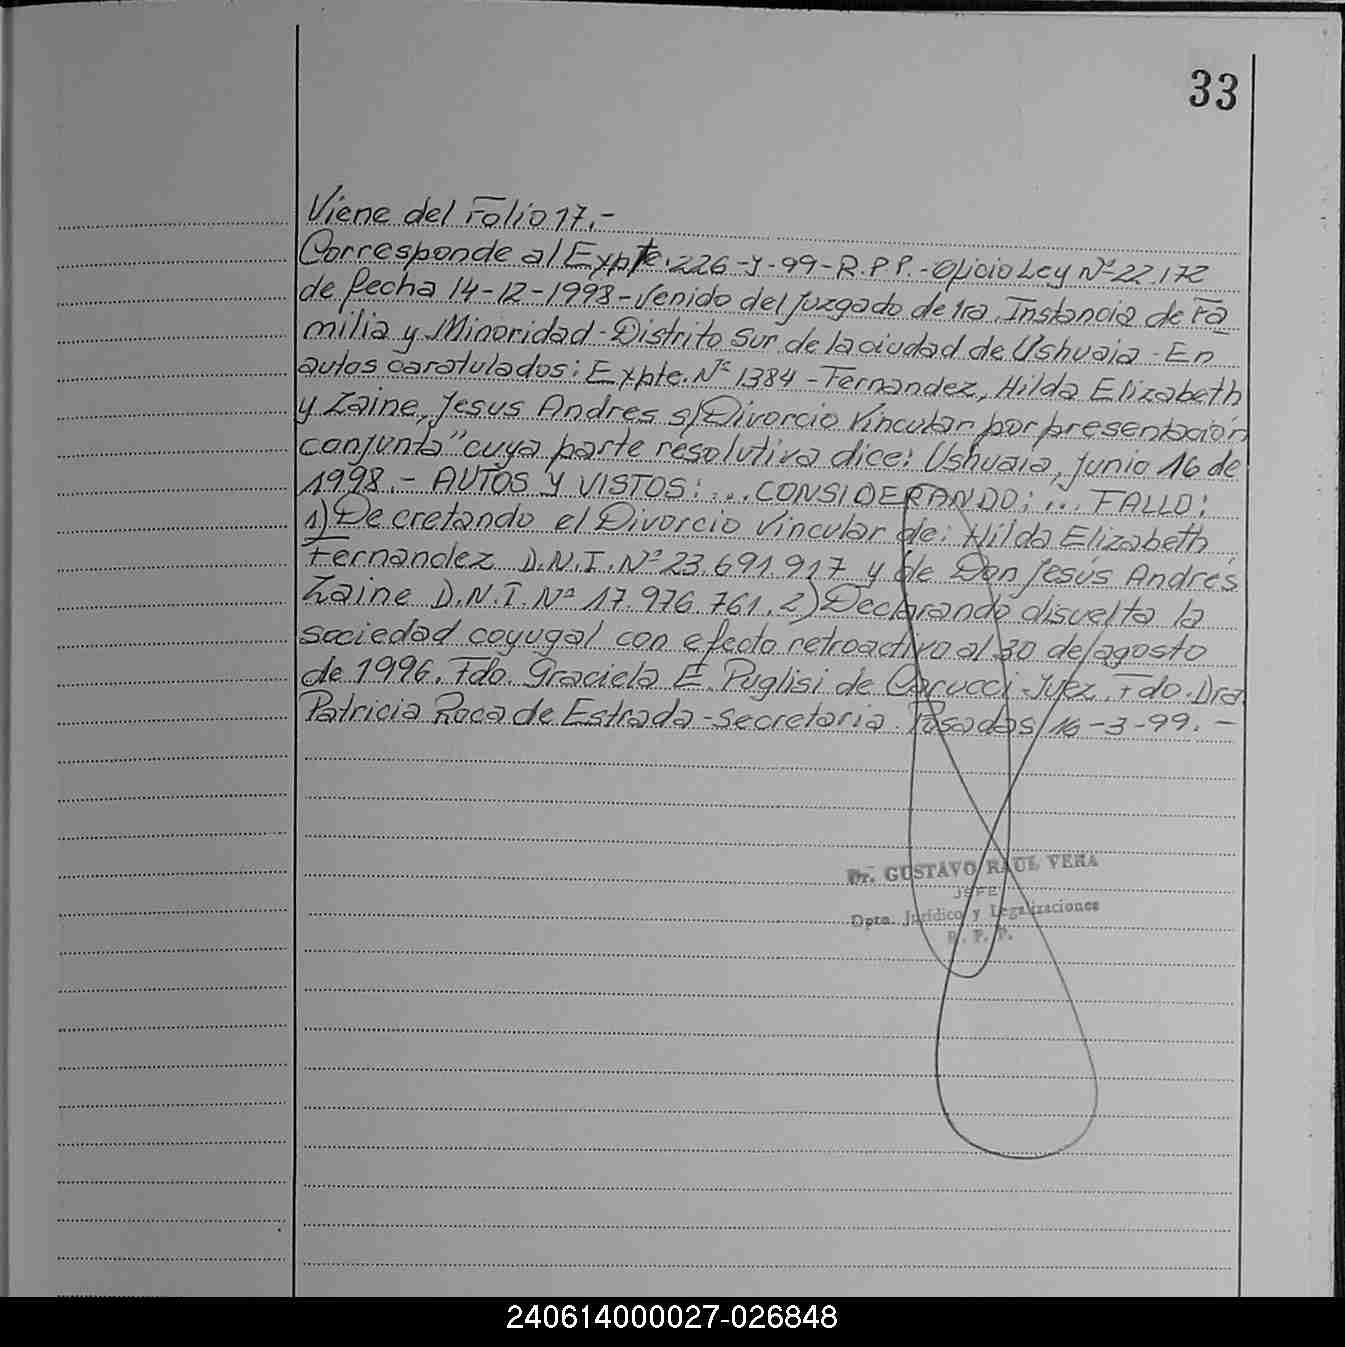 33
Viene del Folio 17.-
Corresponde al Expte. 226-J-99-R.P.P.-Oficio Ley Nº 22.172
de fecha 14-12-1998-Venido del Juzgado de 1ra. Instancia de Fa
milia y Minoridad-Distrito Sur de la ciudad de Ushuaia-En
autos caratulados: Expte. Nº 1384-Fernandez, Hilda Elizabeth
y Zaine, Jesus Andres s/Divorcio Vincular por presentación
conjunta" cuya parte resolutiva dice: Ushuaia, Junio 16 de
1998.- AUTOS y VISTOS:... CONSIDERANDO:... FALLO:
1) Decretando el Divorcio Vincular de: Hilda Elizabeth
Fernandez D.N.I. Nº 23.691.917 y de Don Jesús Andrés
Zaine D.N.I. Nº 17.976.761. 2) Declarando disuelta la
sociedad coyugal con efecto retroactivo al 30 de agosto
de 1996. Fdo. Graciela E. Puglisi de Carucci-Juez. Fdo. Dra.
Patricia Roca de Estrada-secretaria. Posadas 16-3-99.-
Dr. GUSTAVO RAUL VERA
JEFE
Dpto. Jurídico y Legalizaciones
R. P. P.
240614000027-026848